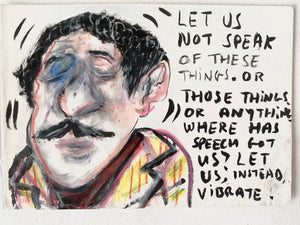 LET US
NOT SPEAK
OF THESE
THINGS. OR
THOSE THINGS
OR ANYTHING
WHERE HAS
SPEECH GOT
US? LET
US, INSTEAD,
VIBRATE.